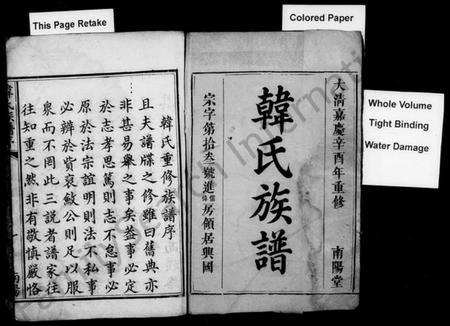 This Page Retake
Colored Paper
Whole Volume
Tight Binding
Water Damage
大清嘉慶辛酉年重修
南陽堂
韓氏族譜
宗字第拾叁號進
房領居興國
韓氏重修族譜序
且夫譜牒之修雖曰舊典亦
非甚易舉之事矣葢事必定
於志孝思篤則志不怠事必
原於法宗誼明則法不私事
必辦於貲裒斂公則貲足以服
衆而不罔此三說者譜家往
往知重之然非有敬慎嚴恪
南陽